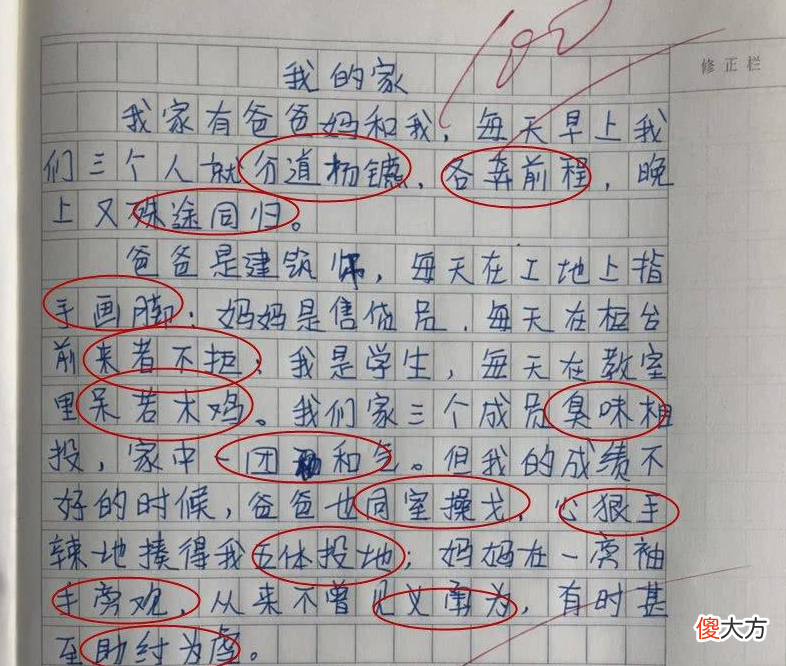 100
修正栏
我的家
我家有爸爸妈和我，每天早上我
们三个人就分道杨镳，各奔前程，晚
上又殊途同归。
爸爸是建筑师，每天在工地上指
手画脚；妈妈是售货员，每天在柜台
前来者不拒；我是学生，每天在教室
里呆若木鸡。我们家三个成员臭味相
投，家中一团和气。但我的成绩不
好的时候，爸爸也同室操戈，心狠手
辣地揍得我五体投地；妈妈在一旁袖
手旁观，从来不曾见义勇为，有时甚
至助纣为虐。
傻大方